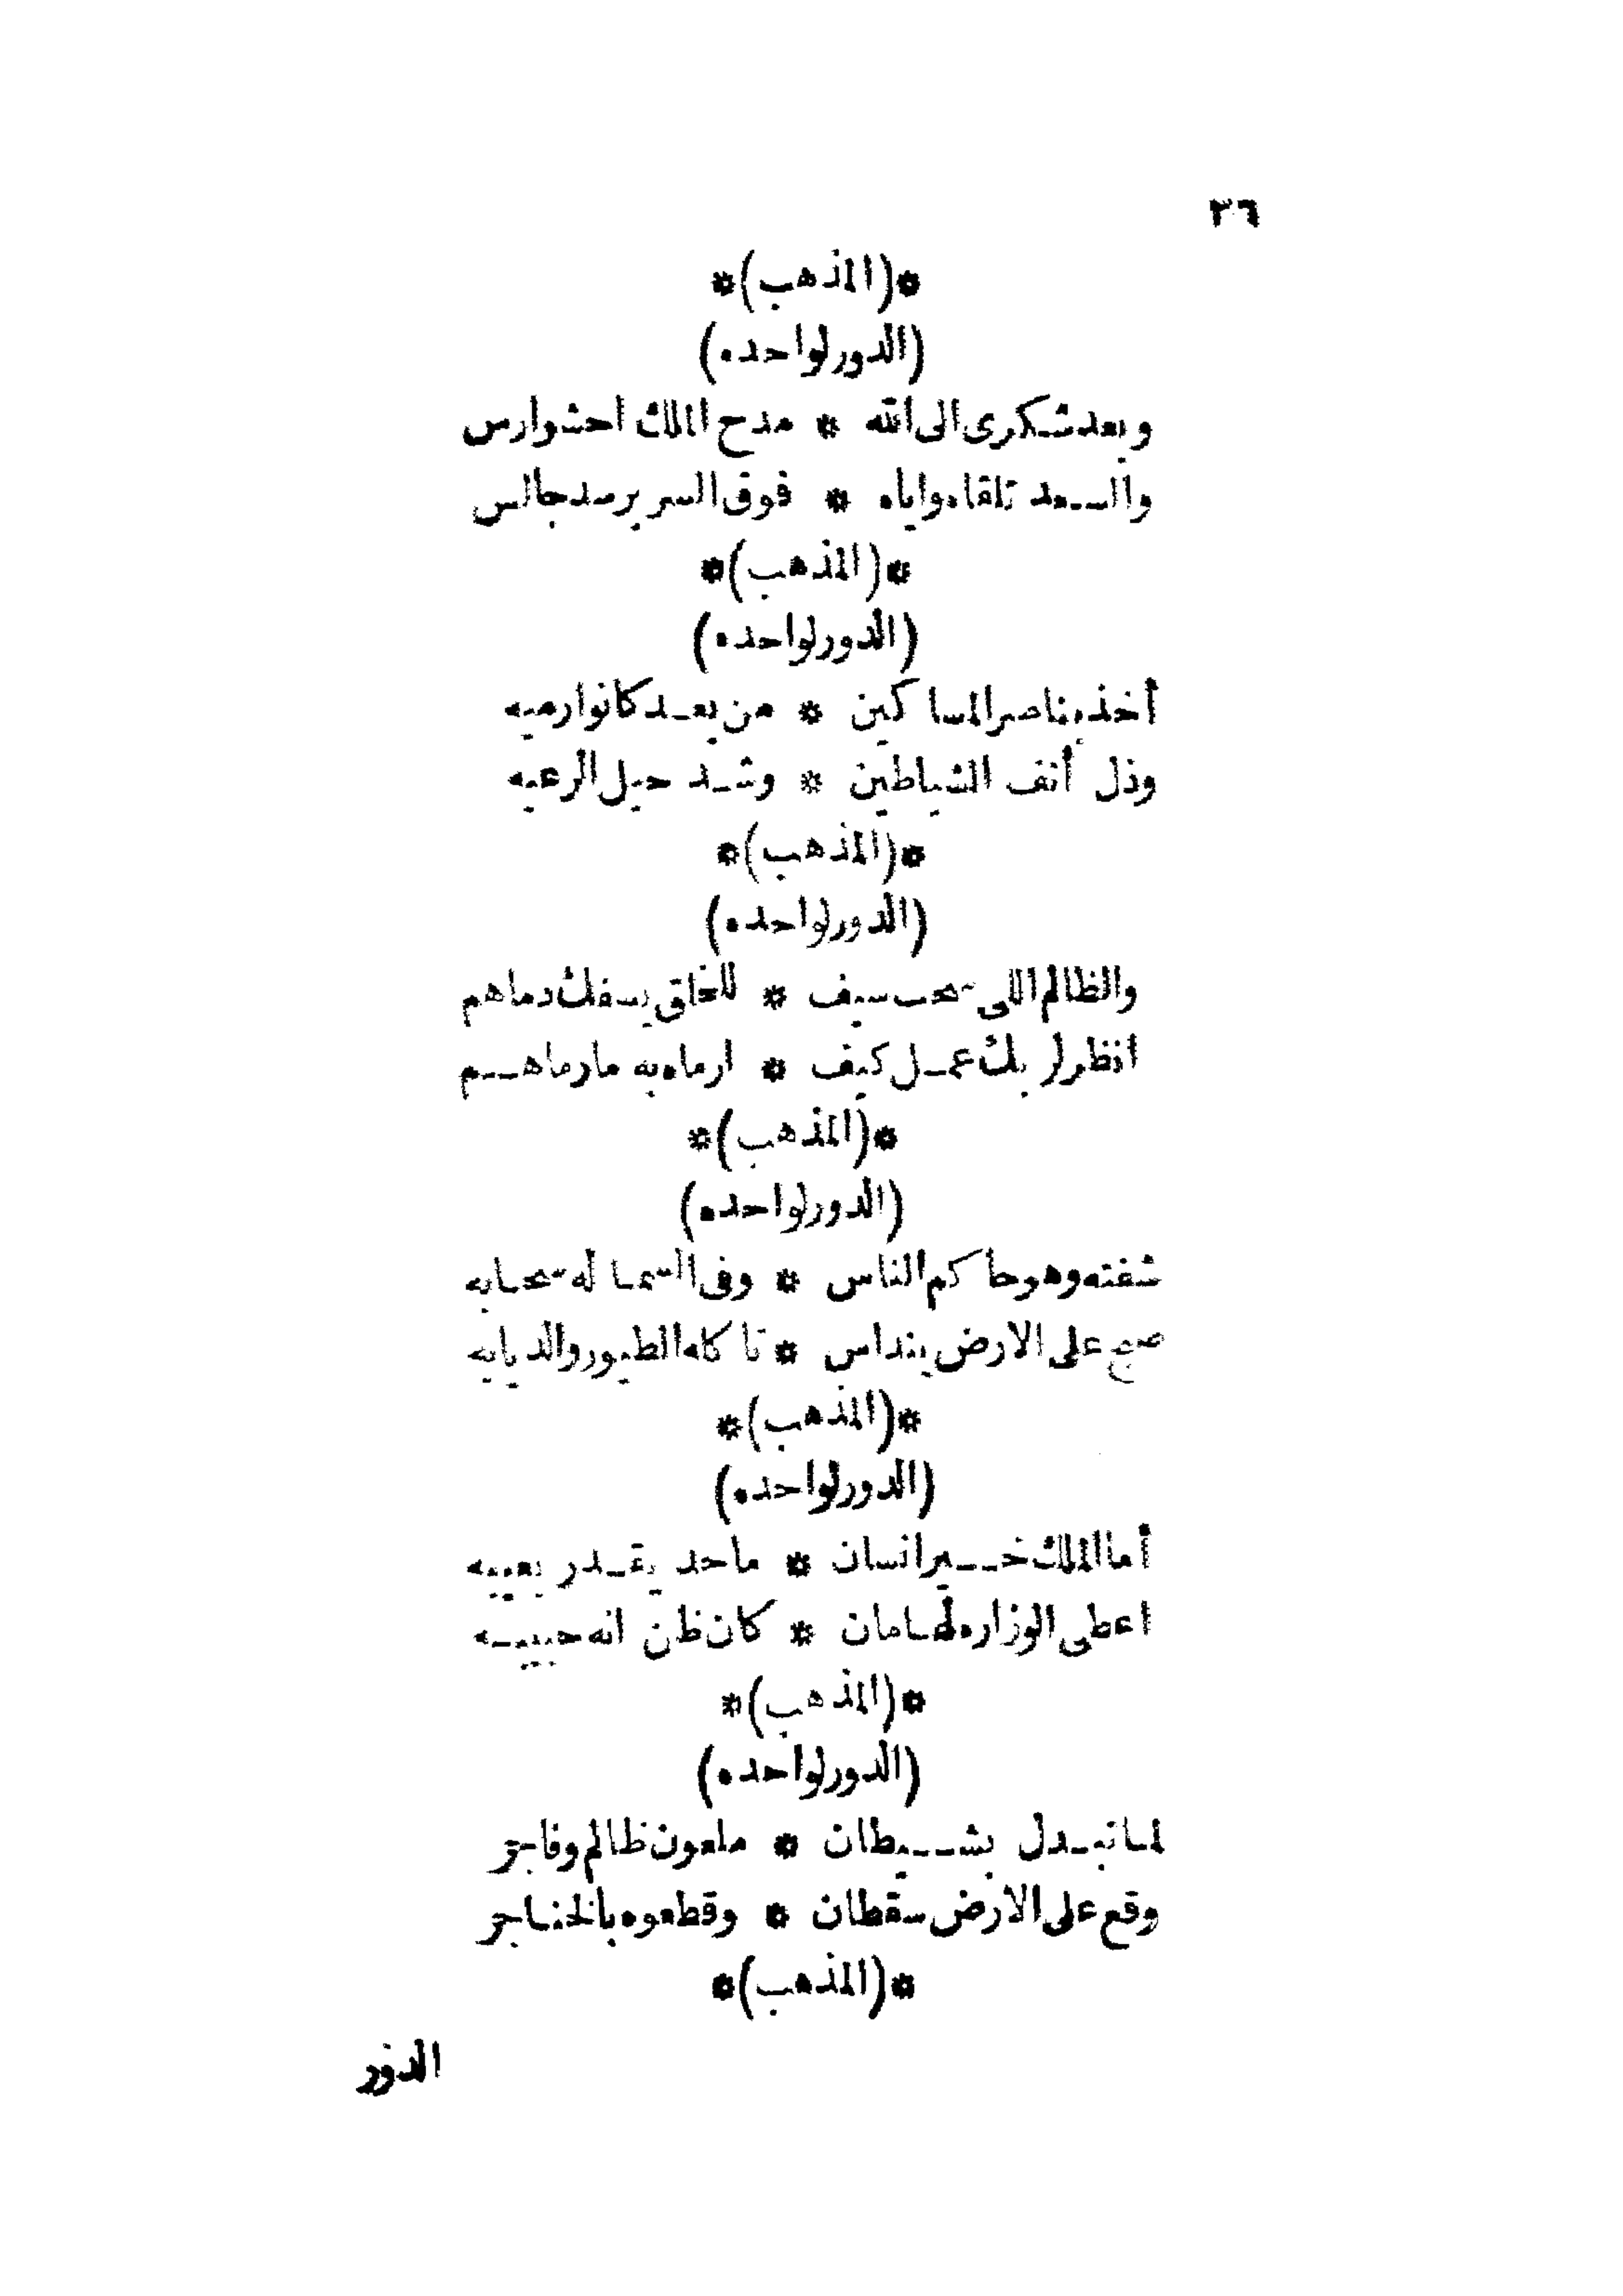 ٣٦
*(المذهب)*
(الدور لواحده)
وبعد شكرى الى الله * مدح الملك احشوارس
والسعد تلقاه واياه * فوق السرير سد جالس
*(المذهب)*
(الدور لواحده)
أخذ بناصر المساكين * من بعد كانوا رميه
وذل أنف الشياطين * وشد حيل الرعيه
*(المذهب)*
(الدور لواحده)
والظالم اللى سحب سيف * للخلق يسفك دماهم
انظر لربك عمل كيف * ارماه به ما رماهم
*(المذهب)*
(الدور لواحده)
شفته وهو حاكم الناس * وفى السما له سحابه
صبح على الارض ينداس * تاكله الطيور والديابه
*(المذهب)*
(الدور لواحده)
أما الملك خير انسان * ما حد يقدر يعيبه
اعطى الوزاره لهامان * كان ظن انه حبيبه
*(المذهب)*
(الدور لواحده)
لما تبدل بشيطان * ملعون ظالم وفاجر
وقع على الارض سقطان * وقطعوه بالخناجر
*(المذهب)*
الدور